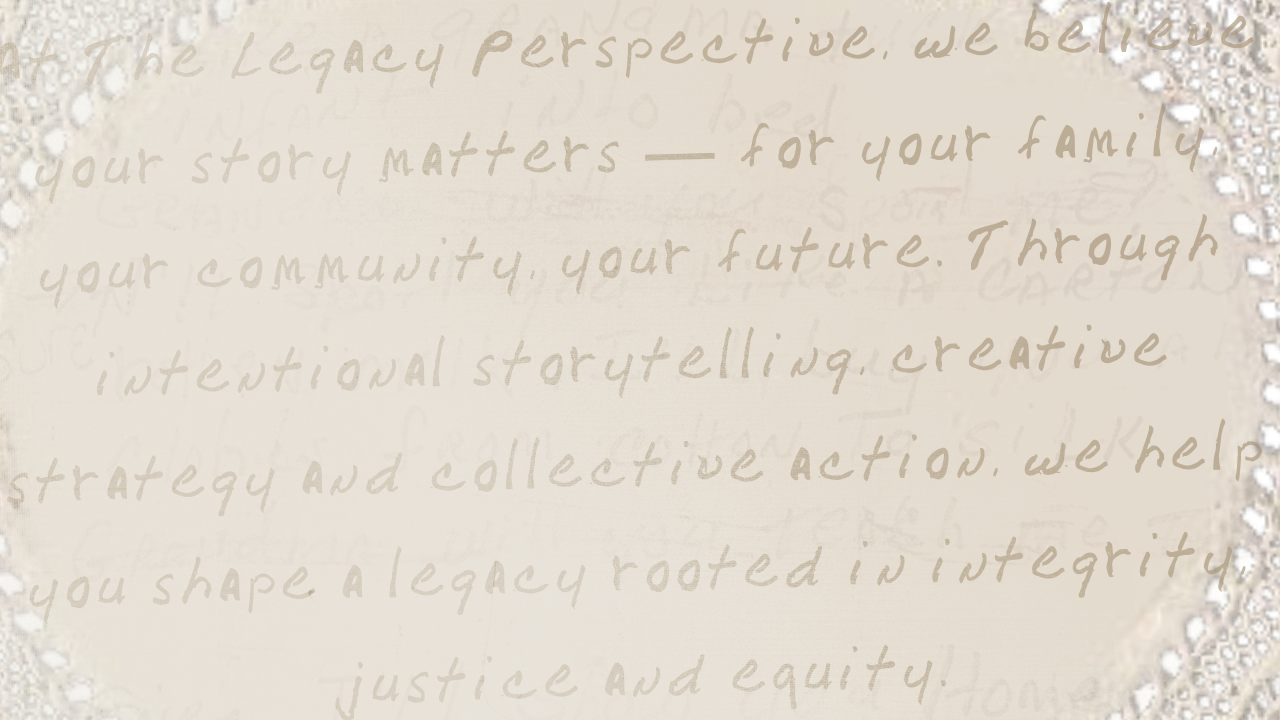 At The Legacy Perspective, we believe
your story matters — for your family,
your community, your future. Through
intentional storytelling, creative
strategy and collective action, we help
you shape a legacy rooted in integrity,
justice and equity.